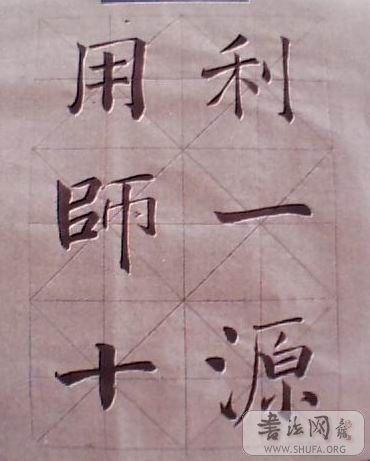 利一源
用師十
書法网
WWW.SHUFA.ORG